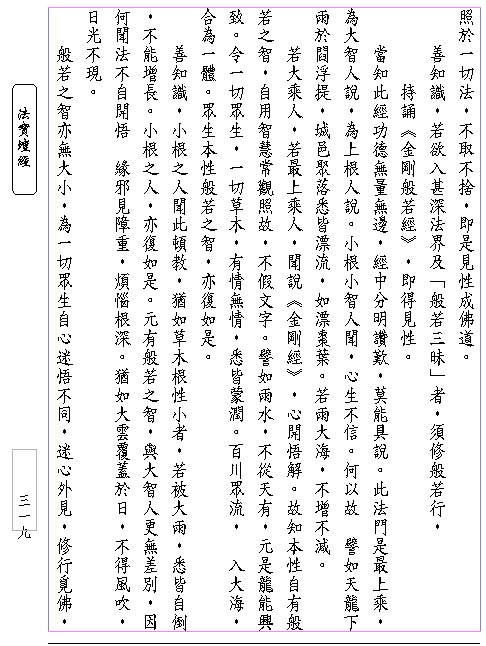 照於一切法，不取不捨，即是見性成佛道。
善知識，若欲入甚深法界及「般若三昧」者，須修般若行，
持誦《金剛般若經》，即得見性。
當知此經功德無量無邊，經中分明讚歎，莫能具說。此法門是最上乘，
為大智人說，為上根人說。小根小智人聞，心生不信。何以故　譬如天龍下
雨於閻浮提，城邑聚落悉皆漂流，如漂棗葉。若雨大海，不增不減。
若大乘人，若最上乘人，聞說《金剛經》，心開悟解。故知本性自有般
若之智，自用智慧常觀照故，不假文字。譬如雨水，不從天有，元是龍能興
致。令一切眾生，一切草木，有情無情，悉皆蒙潤。百川眾流，　入大海，
合為一體。眾生本性般若之智，亦復如是。
善知識，小根之人聞此頓教，猶如草木根性小者，若被大雨，悉皆自倒
，不能增長。小根之人，亦復如是。元有般若之智，與大智人更無差別，因
何聞法不自開悟　緣邪見障重，煩惱根深。猶如大雲覆蓋於日，不得風吹，
日光不現。
般若之智亦無大小，為一切眾生自心迷悟不同，迷心外見，修行覓佛，
法寶壇經
三一九